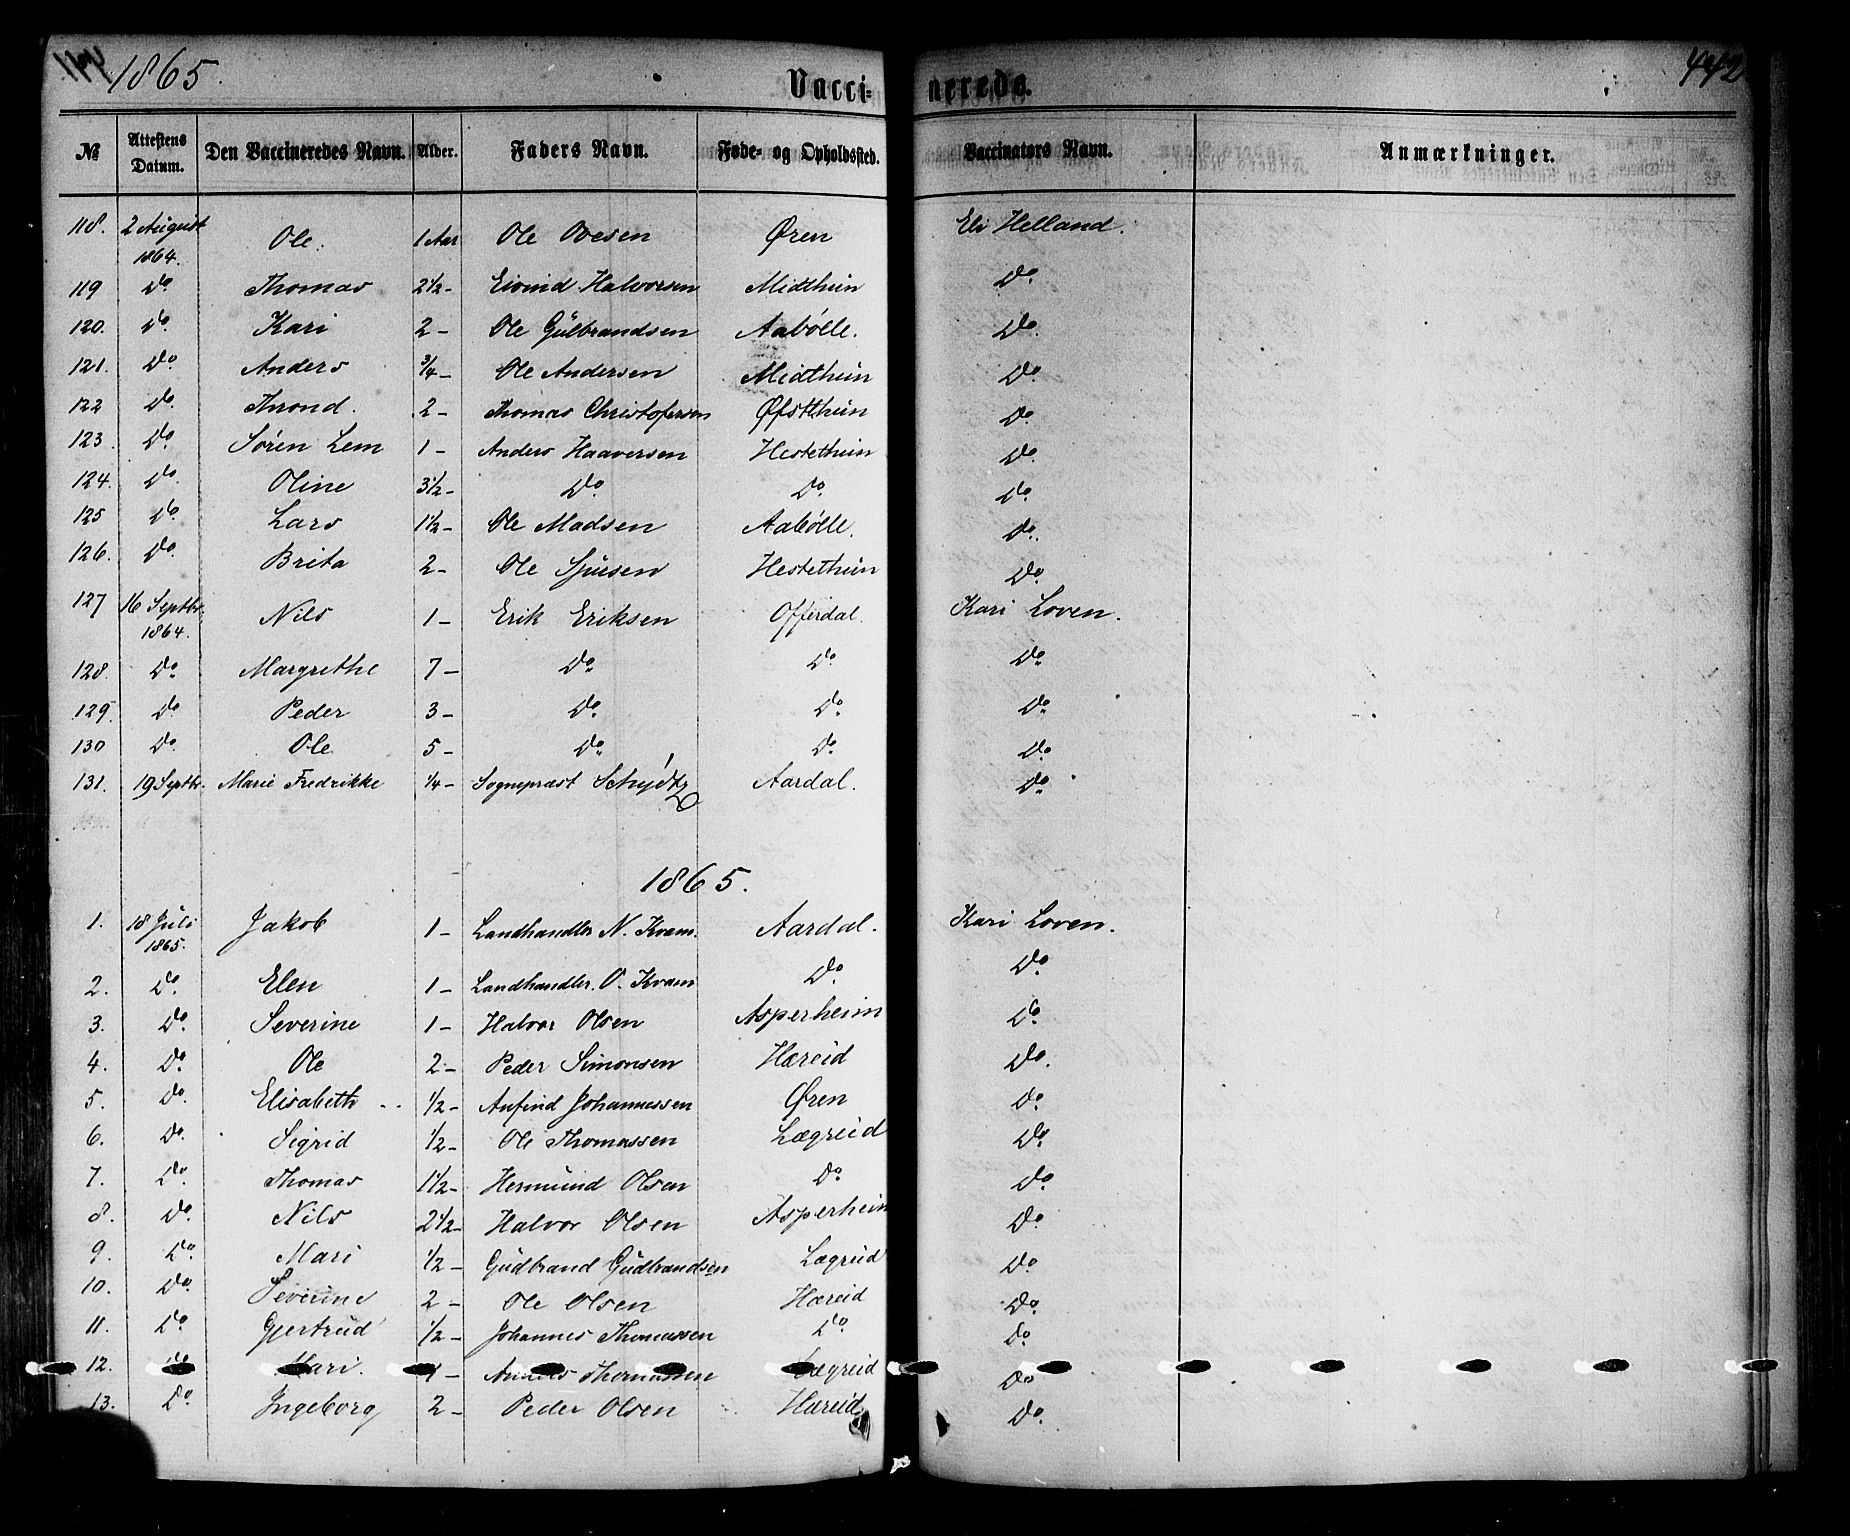 1865. Vaccinerede. 442
№ Attestens Datum. Den Vaccineredes Navn. Alder. Faders Navn. Føde- og Opholdssted. Vaccinators Navn. Anmærkninger.
118. 2 August 1864. Ole. 1 Aar Ole Ovesen Øren Eli Helland.
119 Do Thomas 2½- Eivind Halvorsen Midthun Do.
120. Do Kari 2- Ole Gulbrandsen Aabølle. Do.
121. Do Anders ¾- Ole Andersen Midthun Do.
122 Do. Thrond. 2- Thomas Christofersen Øfstthun Do.
123. Do. Søren Lem 1- Anders Haaversen Hestethun Do.
124. Do. Oline 3½- Do. Do. Do.
125 Do. Lars 1½- Ole Madsen Aabølle. Do.
126. Do. Brita 2- Ole Sjursen Hestethun Do.
127 16 Septbr. 1864. Nils 1- Erik Eriksen Offerdal. Kari Loven.
128. Do. Margrethe 7- Do. Do. Do.
129. Do. Peder 3- Do. Do. Do.
130 Do. Ole 5- Do. Do. Do.
131. 19 Septbr. Marie Fredrikke ¼- Sognepræst Schydtz Aardal. Do.
1865.
1. 18 Juli 1865. Jakob 1- Landhandler N. Kvam. Aardal. Kari Loven.
2. Do. Elen 1- Landhandler. O. Kvam Do. Do.
3. Do. Severine 1- Halvor Olsen Asperheim Do.
4. Do. Ole 2- Peder Simonsen Hæreid Do.
5. Do. Elisabeth ½- Anfind Johannessen Øren Do.
6. Do. Sigrid ½- Ole Thomassen Lægreid Do.
7. Do. Thomas 1½- Hermund Olsen Do. Do.
8. Do. Nils 2½- Halvor Olsen Asperheim Do.
9. Do. Mari ½- Gudbrand Gudbrandsen Lægreid Do.
10. Do. Severine 2- Ole Olsen Hæreid Do.
11. Do. Gjertrud ½- Johannes Thomassen Do. Do.
12. Do Mari. 1- Anders Thomassen Lægreid Do.
13. Do. Ingeborg 2- Peder Olsen Hæreid. Do.